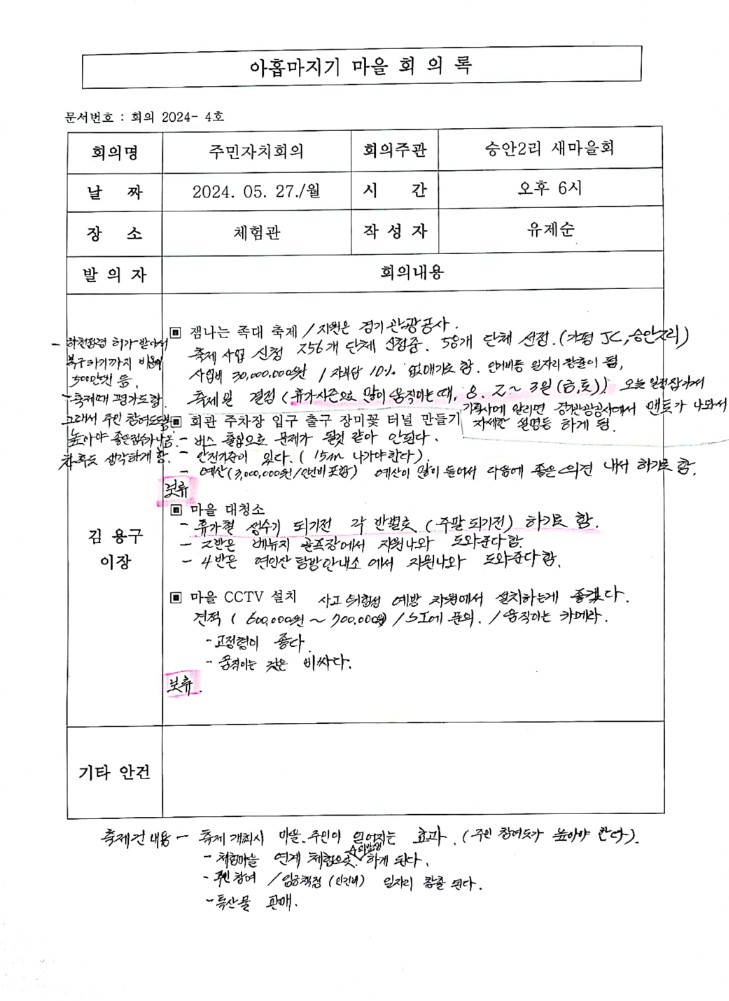 아홉마지기 마을 회 의 록
문서번호 : 회의 2024- 4호
회의명 주민자치회의 회의주관 승안2리 새마을회
날 짜 2024. 05. 27./월 시 간 오후 6시
장 소 체험관 작 성 자 유제순
발 의 자 회의내용
김 용구
이장
▣ 잼나는 족대 축제 / 지원은 경기관광공사.
축제 사업 신청 256개 단체 신청중. 58개 단체 선정. (가평 JC, 승안2리)
사업비 30,000,000원 / 자부담 10% 없애기로 함. 인건비등 일자리 창출이 됨,
축제일 결정 (휴가시즌으로 많이 움직이는때, 8. 2 ~ 3일 (금,토)) 오늘 일정잡가서
기획사에 알리면 경기관광공사에서 멘토가 나와서
자세한 설명등 하게 됨.
- 하천점령 허가 받아서
복구하기까지 비용이
500만원 등,
- 축제때 평가도함.
그래서 주민 참여도
높아야 좋은점수나옴.
차후도 생각하게 함.
▣ 회관 주차장 입구 출구 장미꽃 터널 만들기
- 버스 출입으로 문제가 될것 같아 안된다.
- 안전기준이 있다. ( 15m 나가야 한다).
- 예산(3,000,000원/인건비 포함) 예산이 많이 들어서 다음에 좋은 의견 내서 하기로 함.
보류
▣ 마을 대청소
- 휴가철 성수기 되기전 각 반별로 (주말 되기전) 하기로 함.
- 2반은 베뉴지 골프장에서 지원나와 도와준다함.
- 4반은 연인산 탐방안내소에서 지원나와 도와준다함.
▣ 마을 CCTV 설치 사고 위험성 예방 차원에서 설치하는게 좋겠다.
견적 ( 600,000원 ~ 700,000원) / SI에 문의. / 움직이는 카메라.
- 고정형이 좋다.
- 움직이는 것은 비싸다.
보류.
기타 안건
축제건 내용 - 축제 개최시 마을.주민이 얻어지는 효과. (주민 참여도가 높아야 한다).
- 체험마을 연계 체험으로 하게 된다.
- 주민 참여 / 임금책정 (인건비) 일자리 창출 된다.
- 특산물 판매.